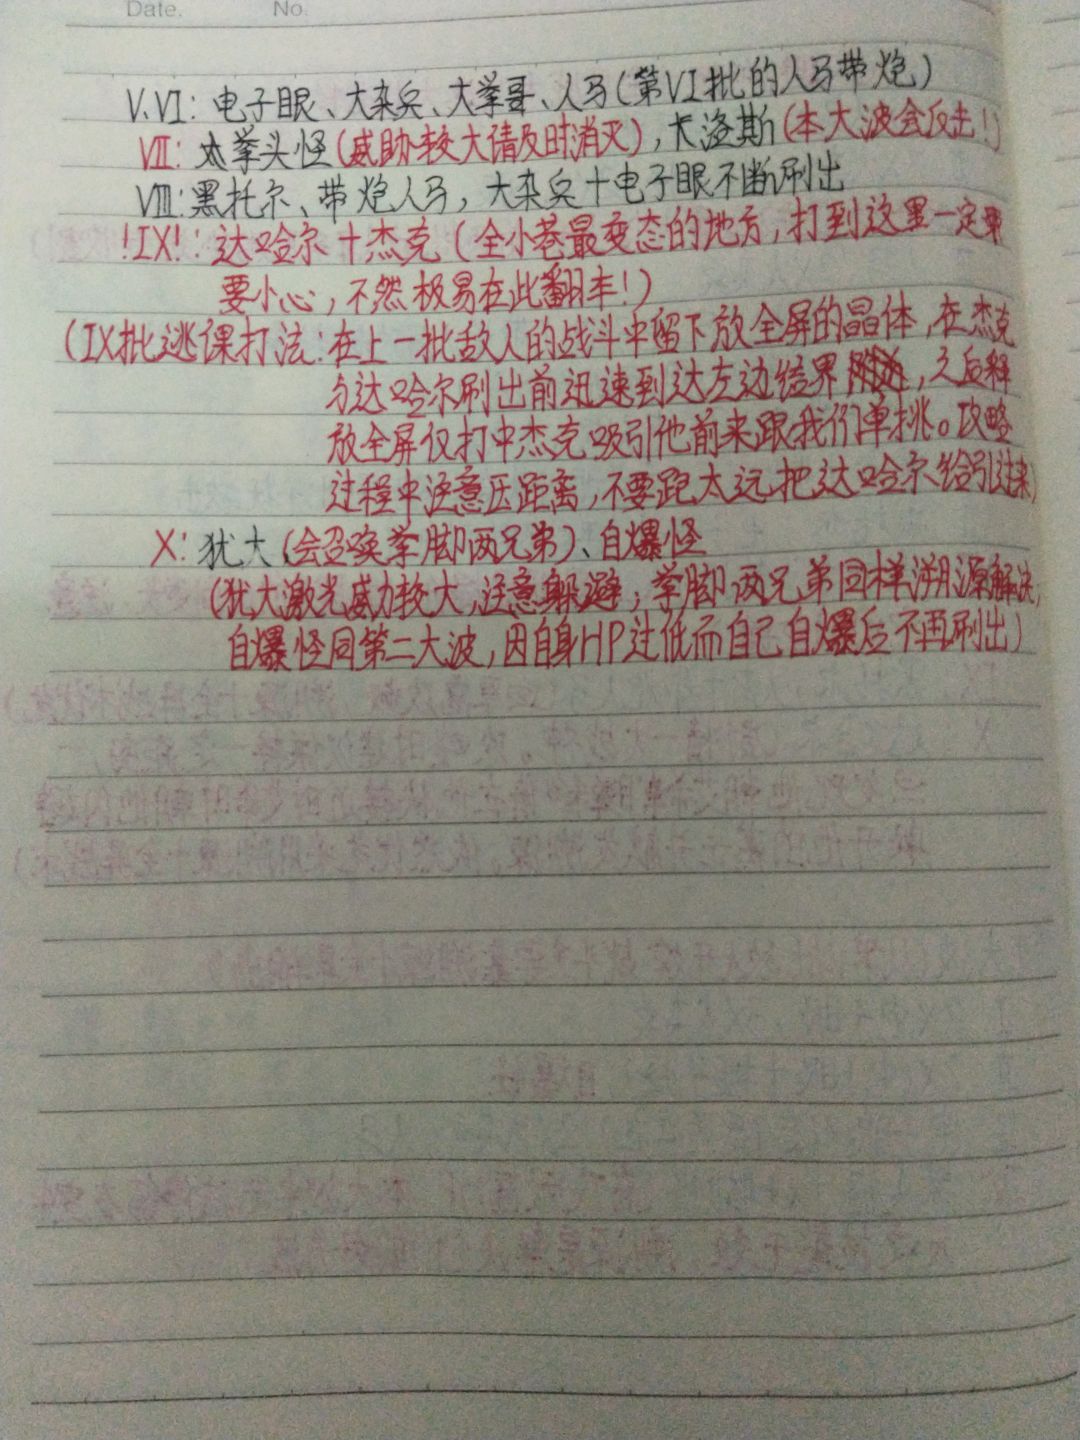 Date. No.
V.VI：电子眼、大杂兵、大拳哥、人马（第VI批的人马带炮）
VII：大拳头怪（威胁较大请及时消灭），卡洛斯（本大波会反击！）
VIII：黑托尔、带炮人马，大杂兵＋电子眼不断刷出
！IX！：达哈尔＋杰克（全小巷最变态的地方，打到这里一定
要小心，不然极易在此翻车！）
（IX批逃课打法：在上一批敌人的战斗中留下放全屏的晶体，在杰克
与达哈尔刷出前迅速到达左边结界，之后释
放全屏仅打中杰克吸引他前来跟我们单挑。攻略
过程中注意压距离，不要跑太远把达哈尔给引过来）
X：犹大（会召唤拳脚两兄弟）、自爆怪
（犹大激光威力较大，注意躲避；拳脚两兄弟同样溯源解决；
自爆怪同第二大波，因自身HP过低而自己自爆后不再刷出）